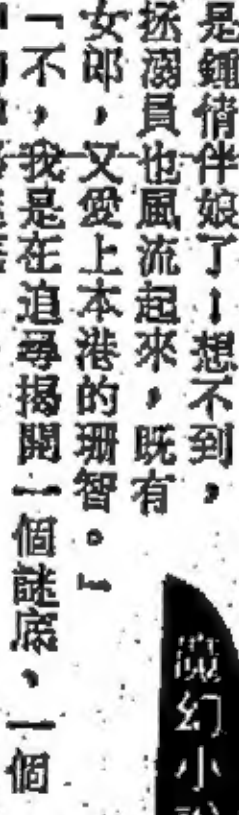 是鍾情伴娘了！想不到，
拯溺員也風流起來，既有
女郎，又愛上本港的珊智。」
「不，我是在追尋揭開一個謎底，一個
魔幻小